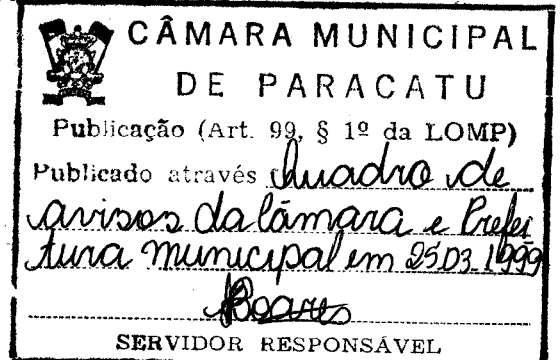 CÂMARA MUNICIPAL
DE PARACATU
Publicação (Art. 99, § 1º da LOMP)
Publicado através Quadro de
avisos da Câmara e Prefei
tura Municipal em 25.03.1999
Soares
SERVIDOR RESPONSÁVEL